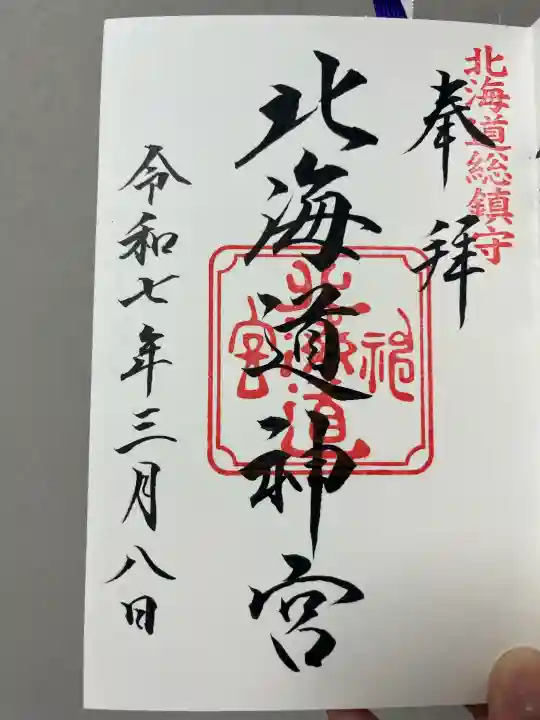 北海道総鎮守
奉拝
北海道神宮
北海道神宮
令和七年三月八日